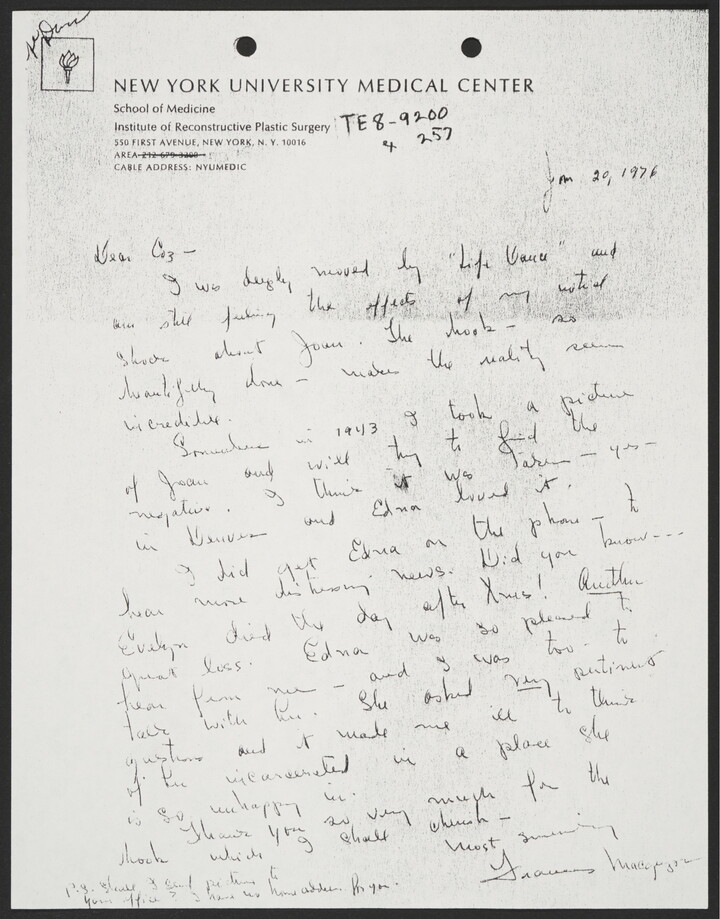 NEW YORK UNIVERSITY MEDICAL CENTER
School of Medicine
Institute of Reconstructive Plastic Surgery TE8-9200
x 257
550 FIRST AVENUE, NEW YORK, N. Y. 10016
AREA 212 679-3200
CABLE ADDRESS: NYUMEDIC
Jan 20, 1976
Dear Coz —
I was deeply moved by "Life Dance" and
am still feeling the effects of my initial
shock about Joan. The book — so
beautifully done — makes the reality seem
incredible.
Somewhere in 1943 I took a picture
of Joan and will try to find the
negative. I think it was taken — yes —
in Denver and Edna loved it.
I did get Edna on the phone — to
hear more distressing news. Did you know ---
Evelyn died the day after Xmas! Another
great loss. Edna was so pleased to
hear from me — and I was too — to
talk with her. She asked very pertinent
questions and it made me ill to think
of her incarcerated in a place she
is so unhappy in.
Thank you so very much for the
book which I shall cherish —
Most sincerely
Frances Macgregor
P.S. Shall I send picture to
your office? I have no home address for you.